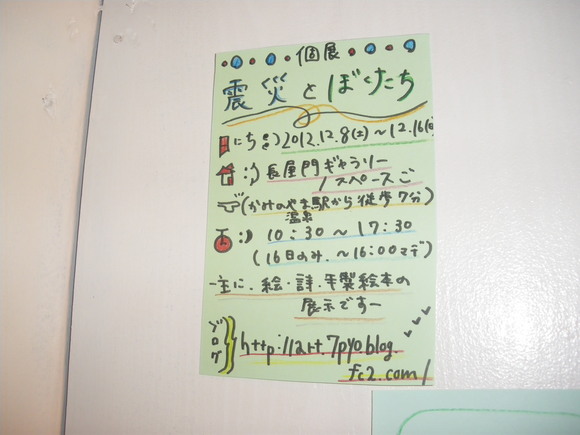 個展
震災とぼくたち
にちじ:) 2012.12.8(土)~12.16(日)
:) 長屋門ギャラリー
/スペースご
(かみのやま温泉駅から徒歩7分)
:) 10:30~17:30
(16日のみ.~16:00マデ)
-主に.絵・詩.手製絵本の
展示ですー
ブログ http://art.7pyo.blog.
fc2.com/